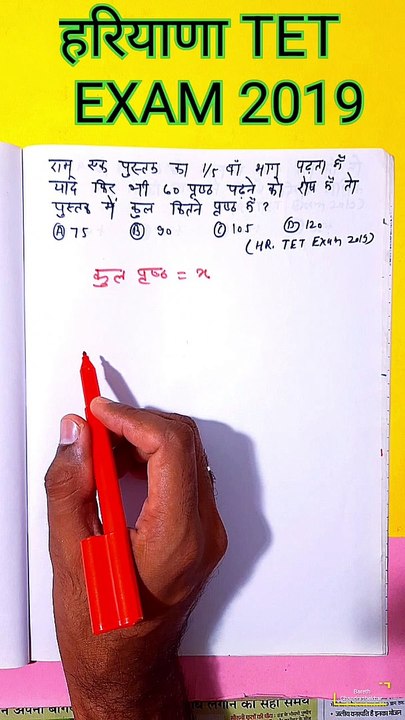 हरियाणा TET
EXAM 2019
राम एक पुस्तक का 1/5 वाँ भाग पढ़ता है
यदि फिर भी 60 पृष्ठ पढ़ने को शेष हैं तो
पुस्तक में कुल कितने पृष्ठ हैं ?
Ⓐ 75 Ⓑ 90 Ⓒ 105 Ⓓ 120
(HR. TET Exam 2019)
कुल पृष्ठ = x